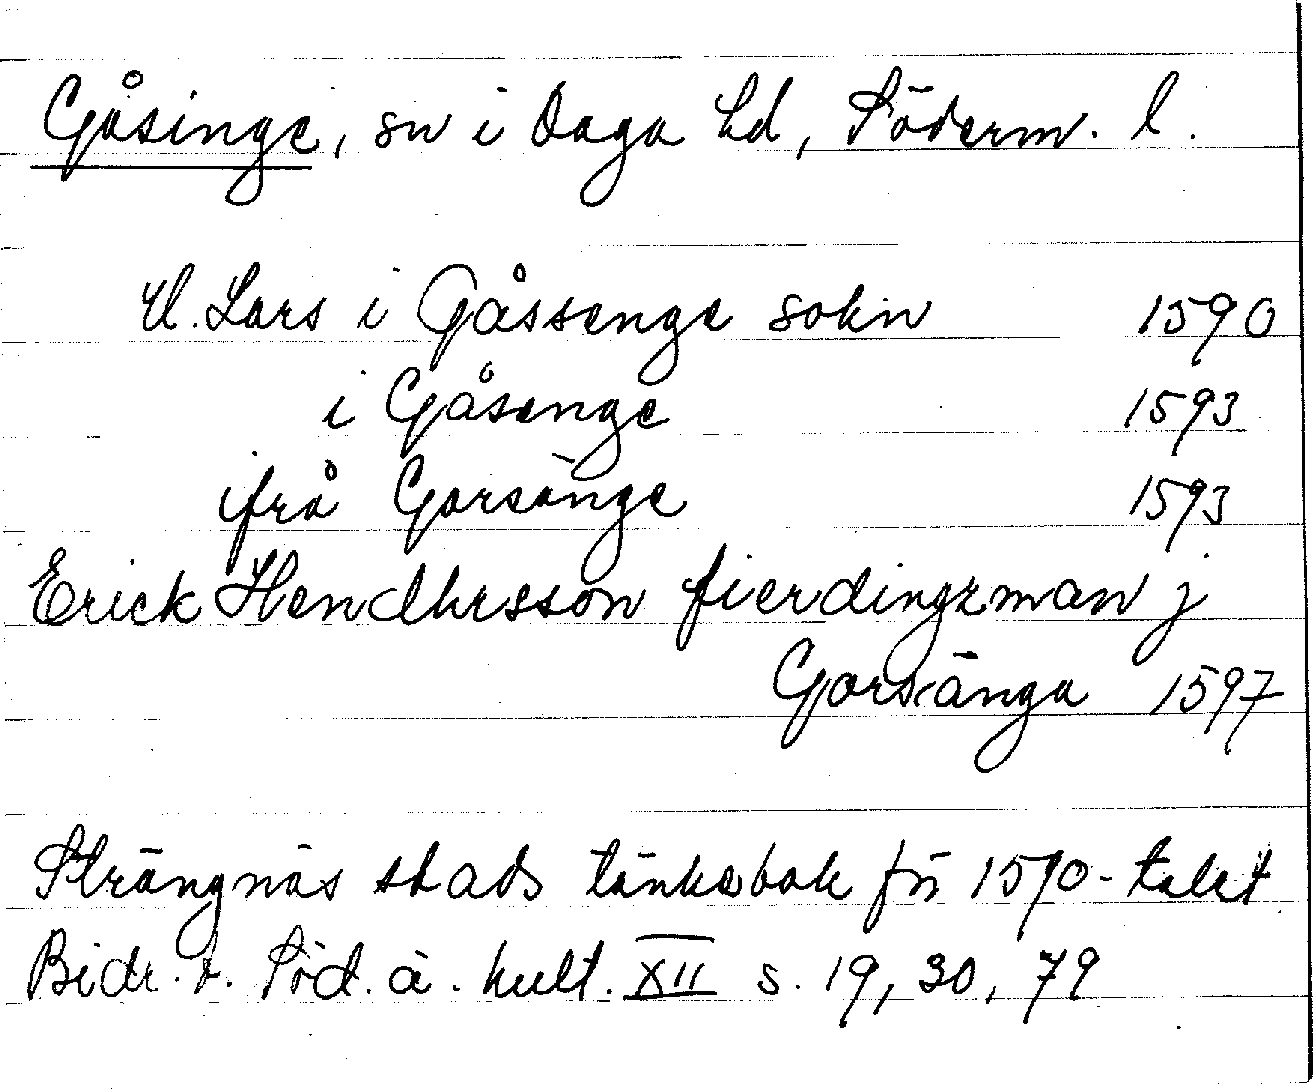 Gåsinge, sn i Daga hd, Söderm. l.
H. Lars i Gåssenge sokn 1590
i Gåsenge 1593
ifrå Gorsänge 1593
Erick Hendhrsson fierdingzman j
Gorsänga 1597
Strängnäs stads tänkebok för 1590-talet
Bidr. t. Söd. ä. kult. XII s. 19, 30, 79